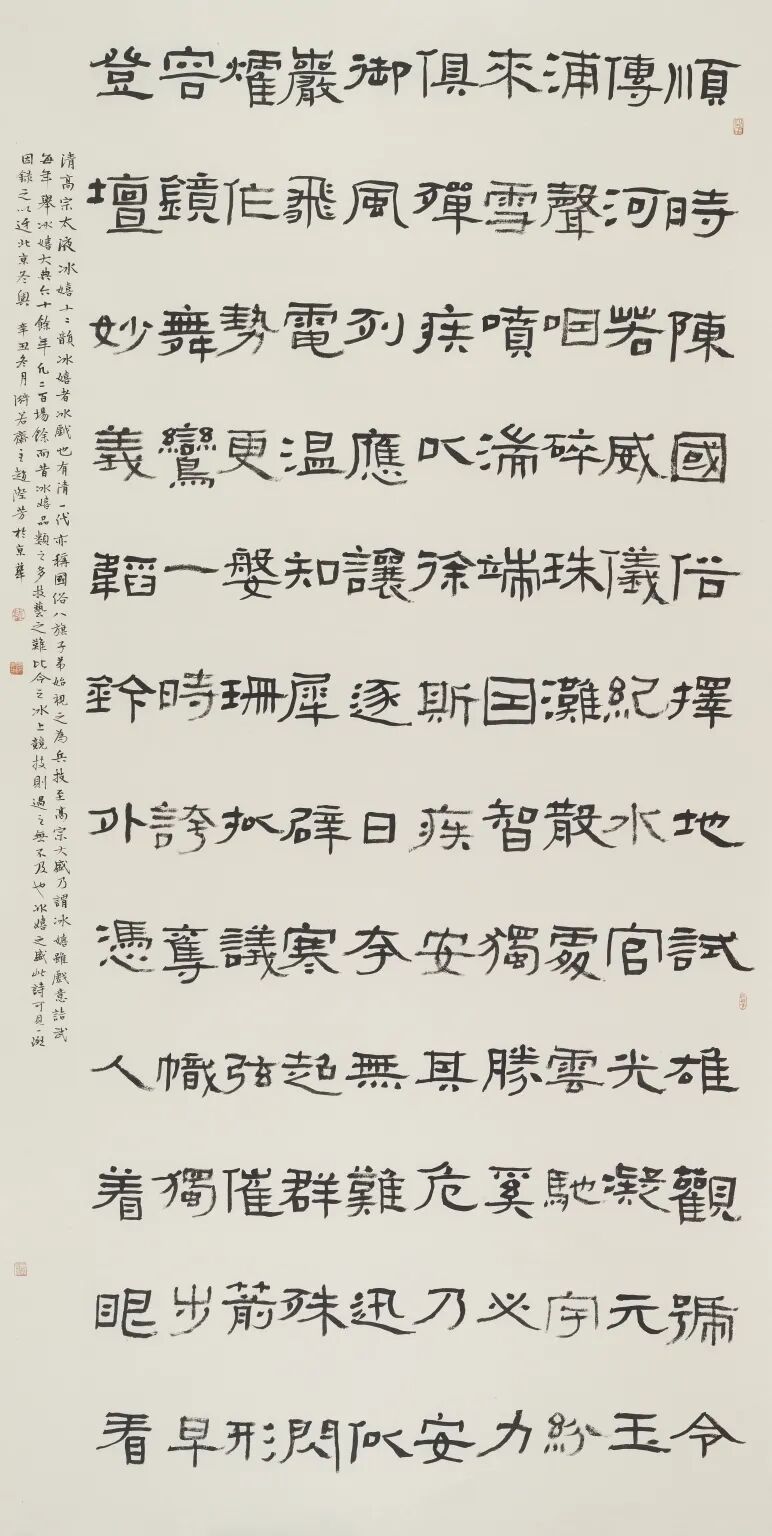 順時陳國俗擇地試雄觀號令
傳河若威儀紀水官光凝元玉
浦聲咽碎珠灘散處雲馳字紛
來雪噴湍端因智獨勝奚必力
俱殫疾以徐斯疾安其危乃安
御風列應讓逐日夸無難迅似
巖飛電温知犀辟寒起群殊閃
燿作勢更媻珊拟議弦催箭形
容鏡舞鸞一時誇奪幟獨步早
登壇妙義韜鈐外憑人着眼看
清高宗太液冰嬉十二韻冰嬉者冰戲也有清一代亦稱國俗八旗子弟始視之為兵技至高宗大盛乃謂冰嬉雖戲意詰武
每年舉冰嬉大典六十餘年凡二百場餘而昔冰嬉品類之多技藝之難比今之冰上競技則過之無不及也冰嬉之盛此詩可見一斑
因錄之以迎北京冬奧辛丑冬月若齋主趙隆芳於京華